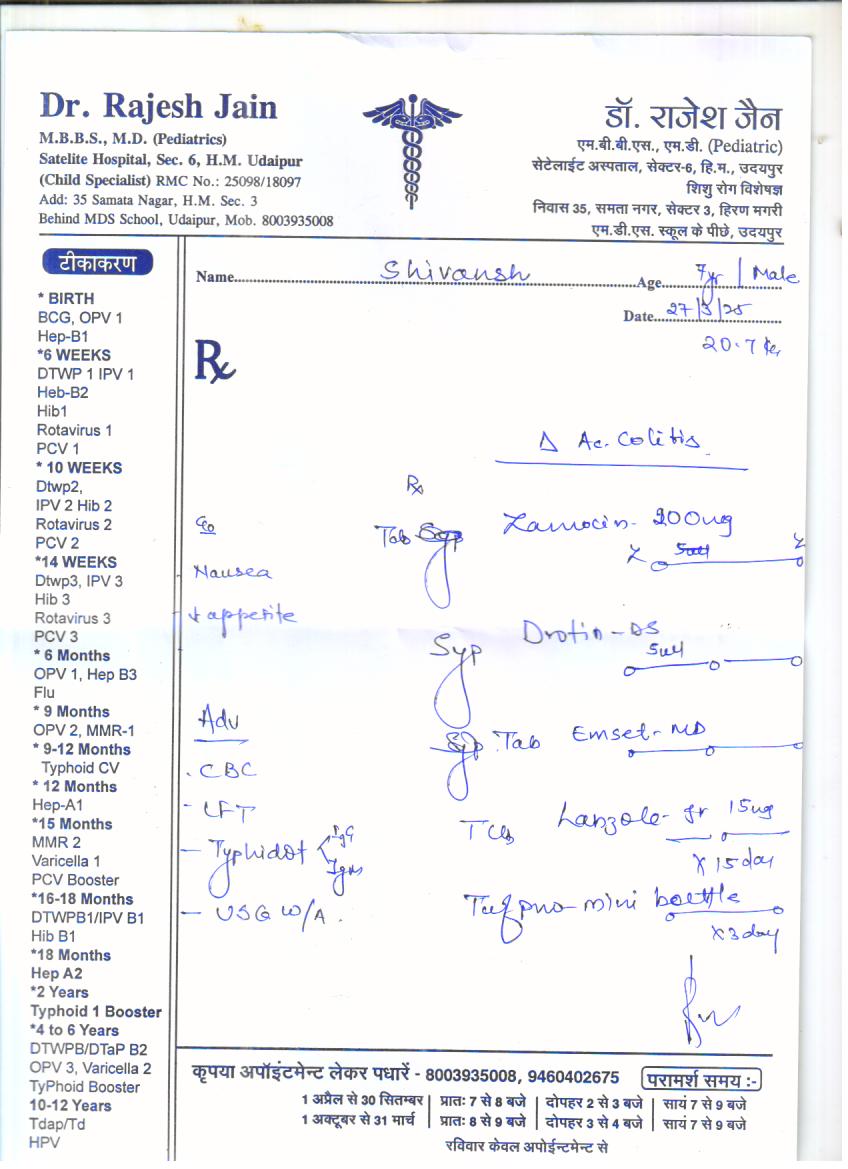 Dr. Rajesh Jain
M.B.B.S., M.D. (Pediatrics)
Satelite Hospital, Sec. 6, H.M. Udaipur
(Child Specialist) RMC No.: 25098/18097
Add: 35 Samata Nagar, H.M. Sec. 3
Behind MDS School, Udaipur, Mob. 8003935008
डॉ. राजेश जैन
एम.बी.बी.एस., एम.डी. (Pediatric)
सेटेलाईट अस्पताल, सेक्टर-6, हि.म., उदयपुर
शिशु रोग विशेषज्ञ
निवास 35, समता नगर, सेक्टर 3, हिरण मगरी
एम.डी.एस. स्कूल के पीछे, उदयपुर
टीकाकरण
* BIRTH
BCG, OPV 1
Hep-B1
*6 WEEKS
DTWP 1 IPV 1
Heb-B2
Hib1
Rotavirus 1
PCV 1
* 10 WEEKS
Dtwp2,
IPV 2 Hib 2
Rotavirus 2
PCV 2
*14 WEEKS
Dtwp3, IPV 3
Hib 3
Rotavirus 3
PCV 3
* 6 Months
OPV 1, Hep B3
Flu
* 9 Months
OPV 2, MMR-1
* 9-12 Months
Typhoid CV
* 12 Months
Hep-A1
*15 Months
MMR 2
Varicella 1
PCV Booster
*16-18 Months
DTWPB1/IPV B1
Hib B1
*18 Months
Hep A2
*2 Years
Typhoid 1 Booster
*4 to 6 Years
DTWPB/DTaP B2
OPV 3, Varicella 2
TyPhoid Booster
10-12 Years
Tdap/Td
HPV
Name Shivansh Age 7yr / Male
Date 27/3/25
20.7 kg
Rx
Δ Ac. Colitis
C/o
Nausea
↓ appetite
Adv
. CBC
- LFT
- Typhidot < IgG
IgM
- USG W/A .
Rx
Tab Syp Zamocin- 200mg
5ml
Syp Drotin-DS
5ml
Syp. Tab Emset-MD
Tab Lanzole- Jr 15mg
x 15 day
mini bottle
x 3 day
कृपया अपॉइंटमेन्ट लेकर पधारें - 8003935008, 9460402675 परामर्श समय :-
1 अप्रैल से 30 सितम्बर | प्रातः 7 से 8 बजे | दोपहर 2 से 3 बजे | सायं 7 से 9 बजे
1 अक्टूबर से 31 मार्च | प्रातः 8 से 9 बजे | दोपहर 3 से 4 बजे | सायं 7 से 9 बजे
रविवार केवल अपोईन्टमेन्ट से